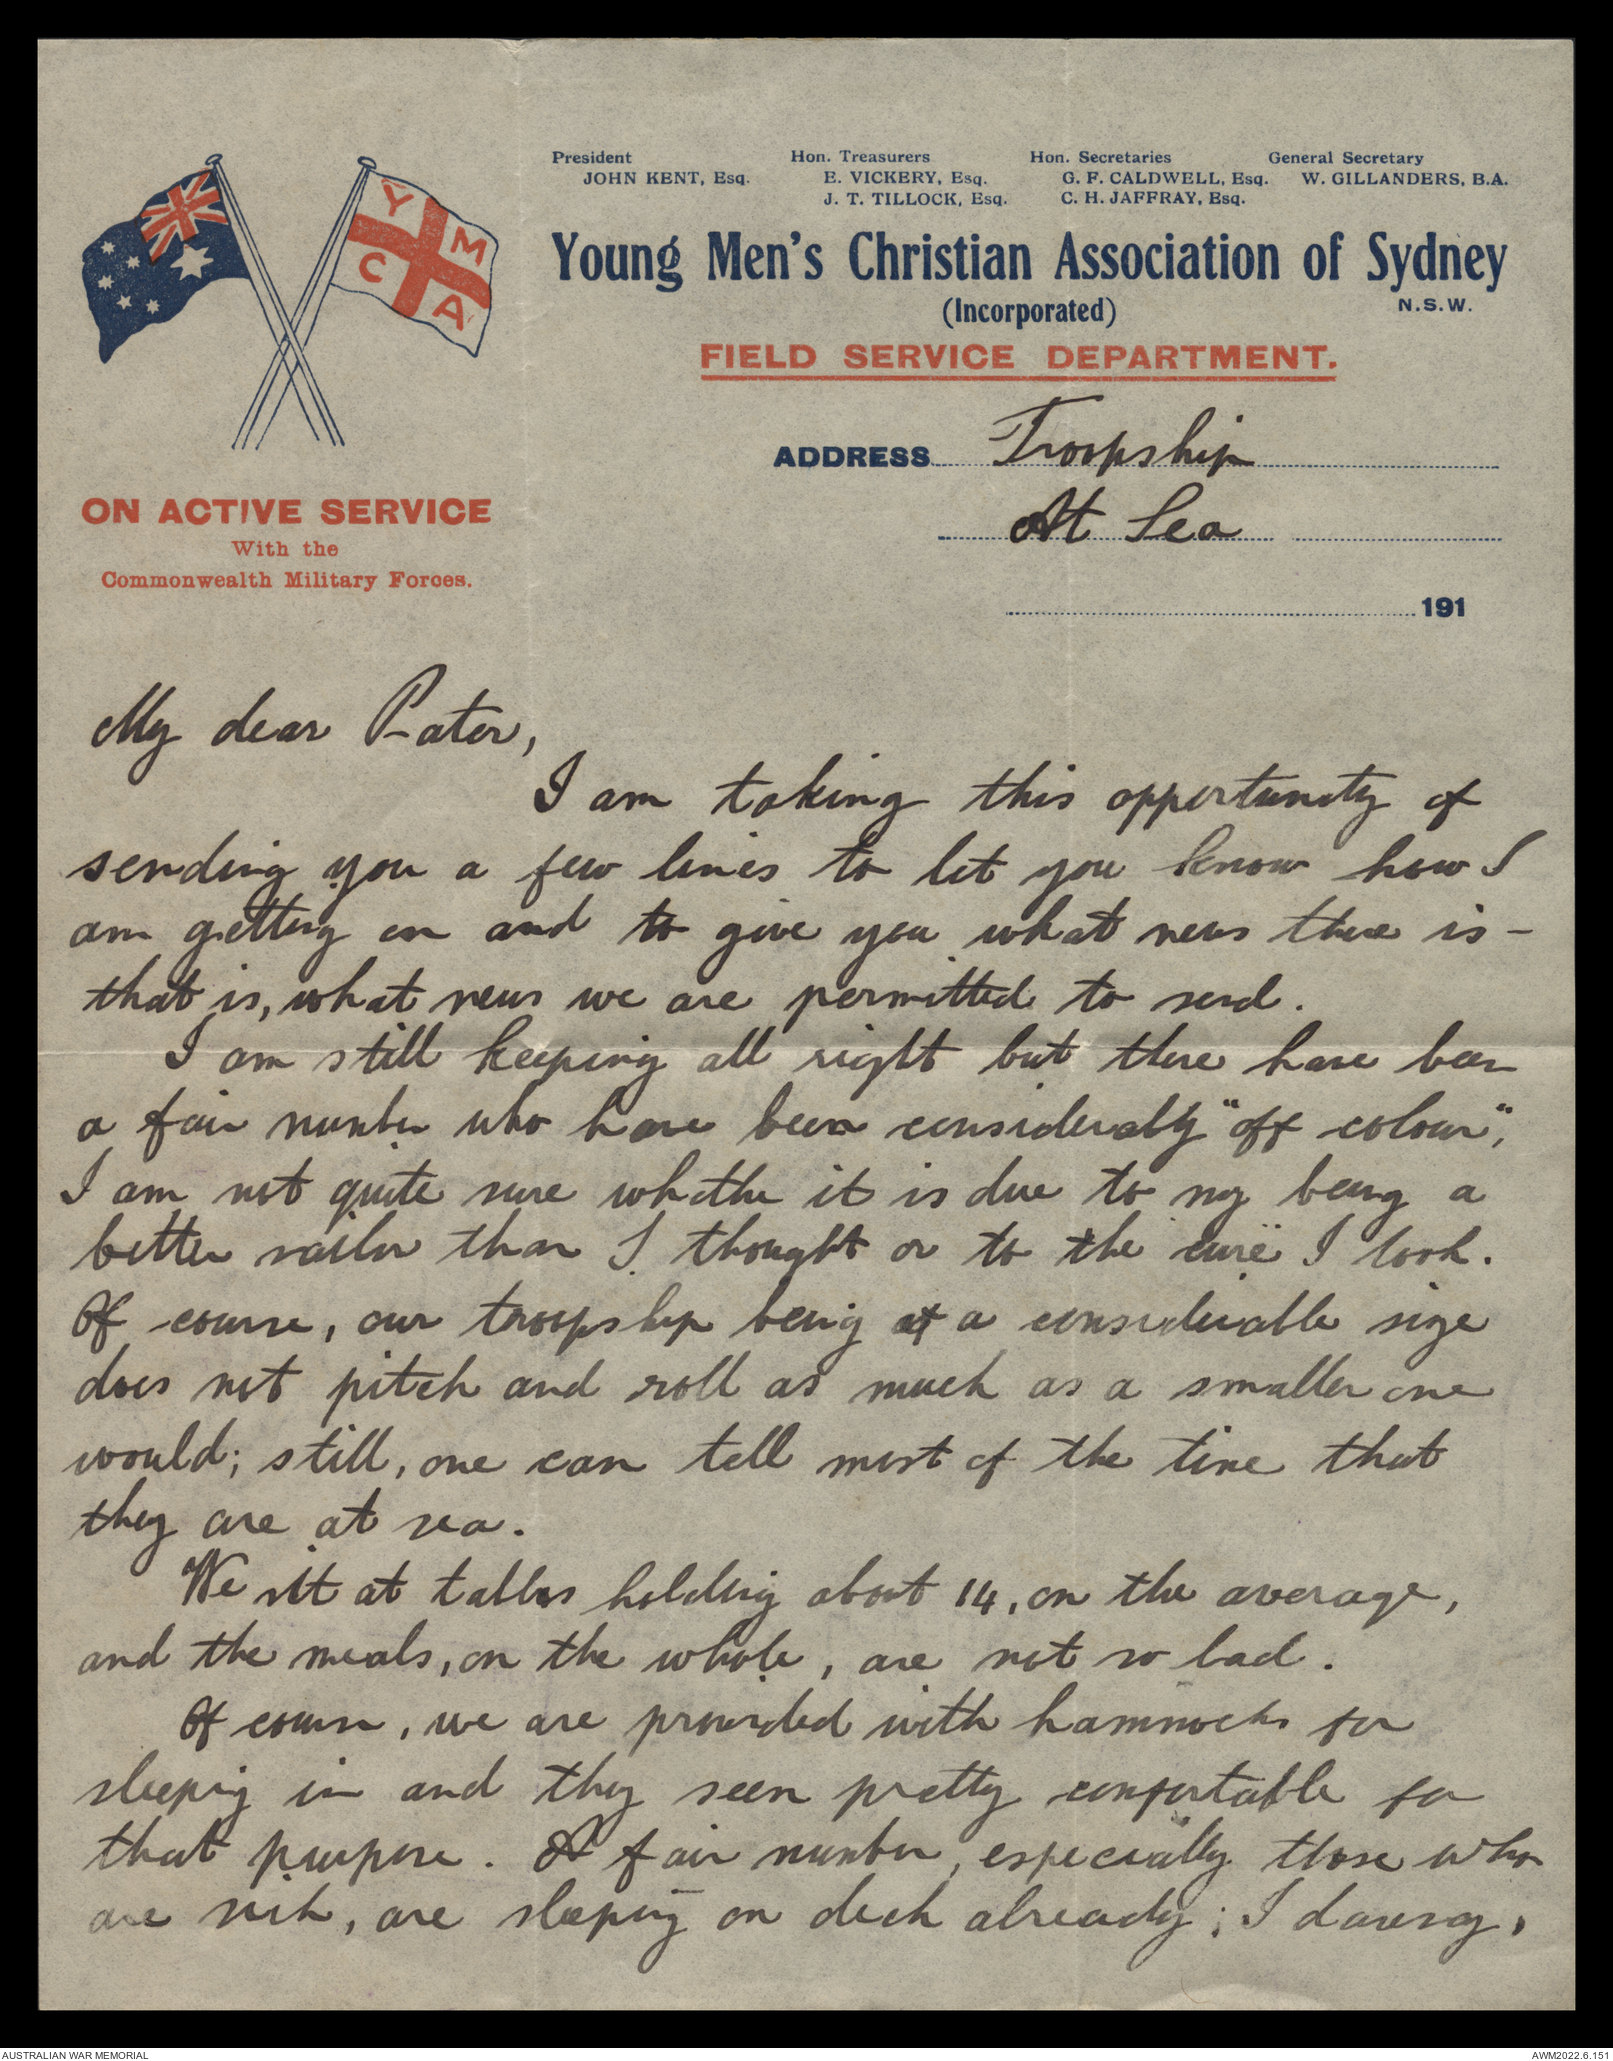 President
JOHN KENT, Esq.
Hon. Treasurers
E. VICKERY, Esq.
J. T. TILLOCK, Esq.
Hon. Secretaries
G. F. CALDWELL, Esq.
C. H. JAFFRAY, Esq.
General Secretary
W. GILLANDERS, B.A.
Y M C A
Young Men's Christian Association of Sydney
(Incorporated) N.S.W.
FIELD SERVICE DEPARTMENT.
ON ACTIVE SERVICE
With the
Commonwealth Military Forces.
ADDRESS Troopship
At Sea
191
My dear Pater,
I am taking this opportunity of
sending you a few lines to let you know how I
am getting on and to give you what news there is -
that is, what news we are permitted to send.
I am still keeping all right but there have been
a fair number who have been considerably "off colour",
I am not quite sure whether it is due to my being a
better sailor than I thought or to the "cure" I took.
Of course, our troopship being of a considerable size
does not pitch and roll as much as a smaller one
would; still, one can tell most of the time that
they are at sea.
We sit at tables holding about 14, on the average,
and the meals, on the whole, are not so bad.
Of course, we are provided with hammocks for
sleeping in and they seem pretty comfortable for
that purpose. A fair number, especially those who
are sick, are sleeping on deck already; I daresay,
AUSTRALIAN WAR MEMORIAL
AWM2022.6.151